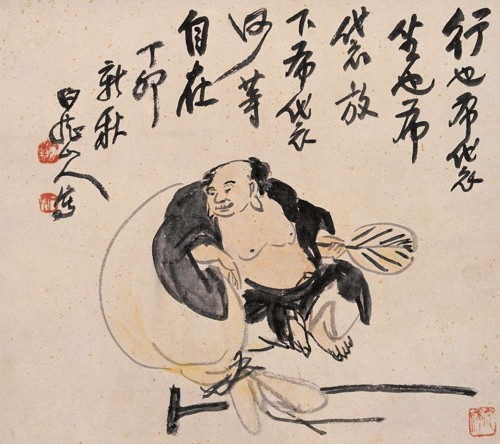 行也布袋
坐也布
袋放
下布袋
何等
自在
丁卯
新秋
白龍山人寫